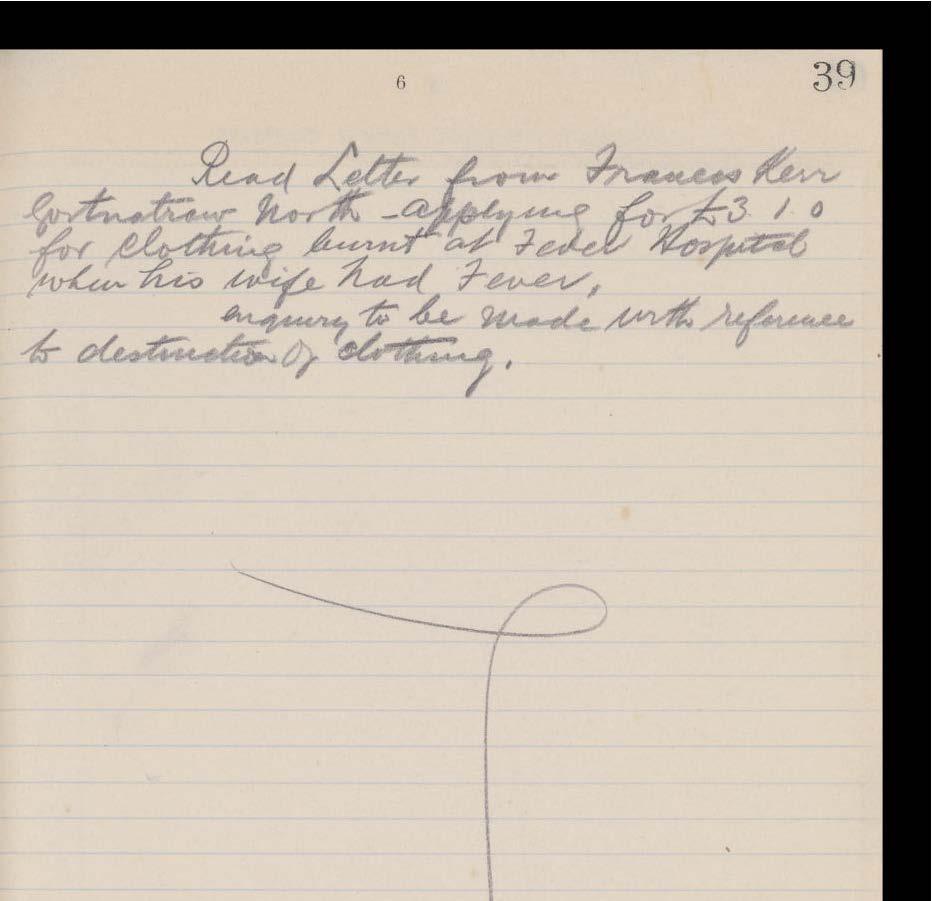 6
39
Read Letter from Francis Kerr
Gortnatraw North - applying for £3 1 0
for Clothing burnt at Fever Hospital
when his wife had Fever,
enquiry to be made with reference
to destruction of clothing.